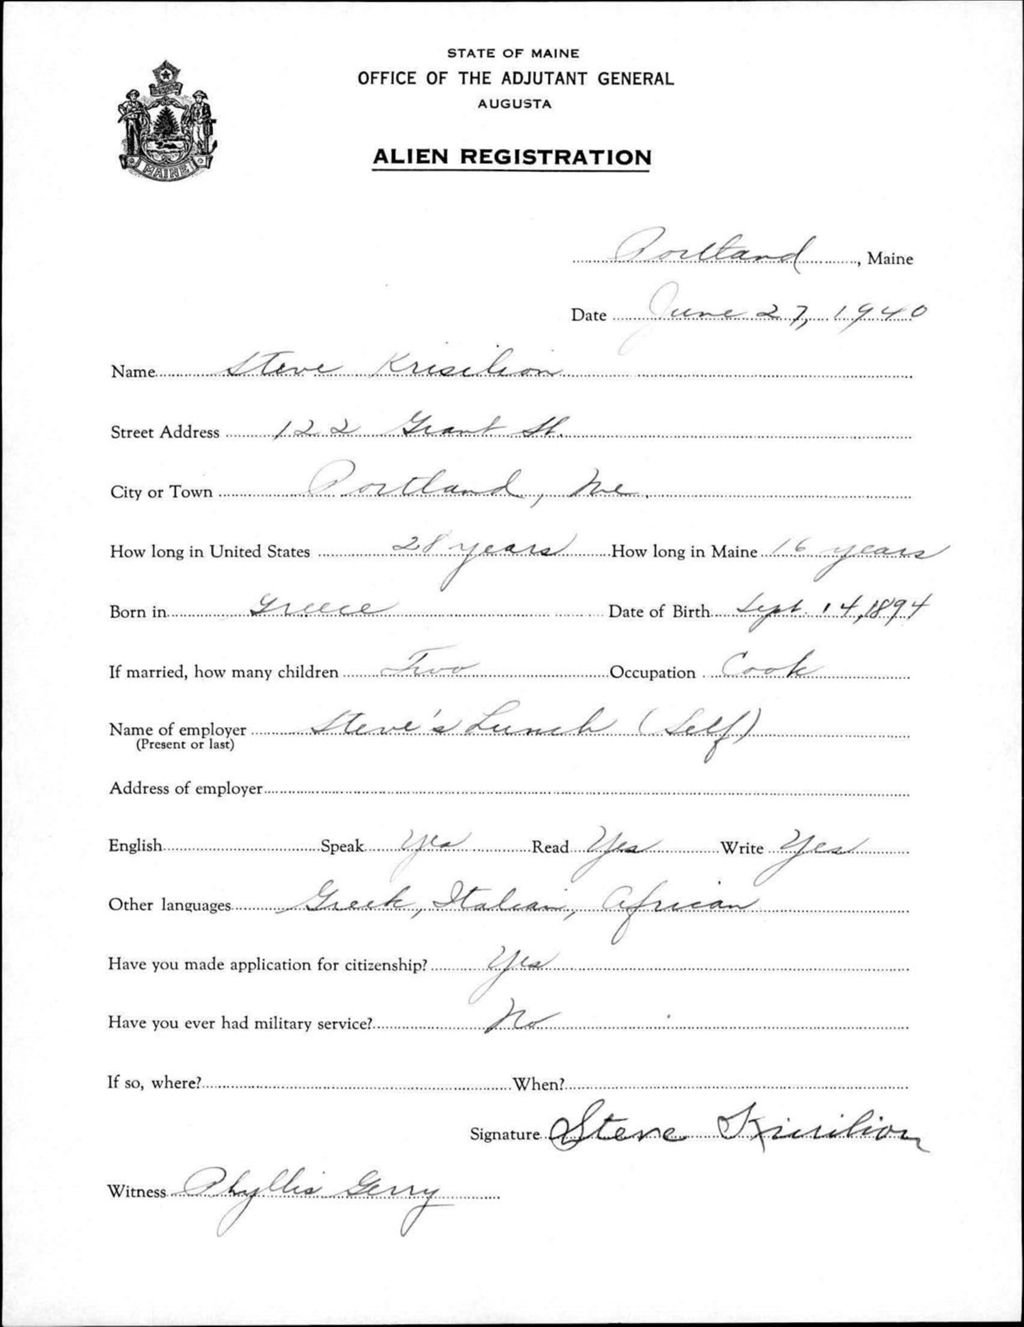 STATE OF MAINE
OFFICE OF THE ADJUTANT GENERAL
AUGUSTA
ALIEN REGISTRATION
MAINE
Portland, Maine
Date June 27, 1940
Name Steve Krisilion
Street Address 122 Grant St.
City or Town Portland, Me.
How long in United States 28 years How long in Maine 16 years
Born in Greece Date of Birth Sept. 14, 1894
If married, how many children Two Occupation Cook
Name of employer Steve's Lunch (Self)
(Present or last)
Address of employer
English Speak Yes Read Yes Write Yes
Other languages Greek, Italian, African
Have you made application for citizenship? Yes
Have you ever had military service? No
If so, where? When?
Signature Steve Krisilion
Witness Phyllis Gerry